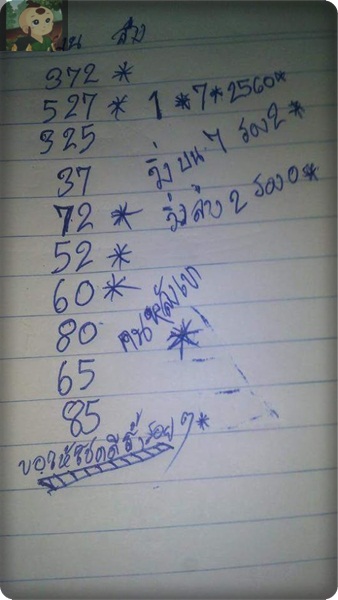 บน ล่าง
372 *
527 * 1 * 7 * 2560 *
325
37 วิ่งบน 7 รอง 2 *
72 * วิ่งล่าง 2 รอง 0 *
52 *
60 *
80 *
65
85
ขอให้โชคดี ๆ *